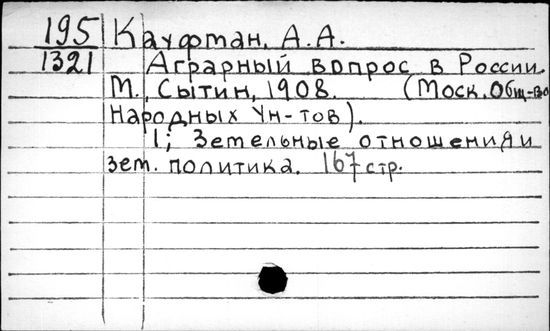 195 Кауфман, А.А.
1321 Аграрный вопрос в России.
М., Сытин, 1908. (Моск. Общ-во
Народных Ун-тов).
1; Земельные отношения и
зем. политика. 167 стр.